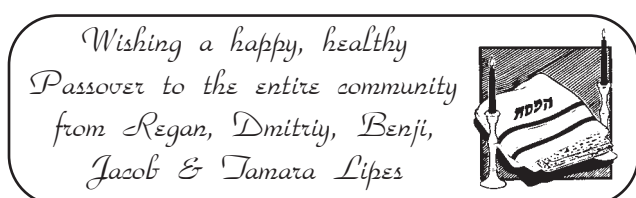 Wishing a happy, healthy
Passover to the entire community
from Regan, Dmitriy, Benji,
Jacob & Tamara Lipes
הפסח